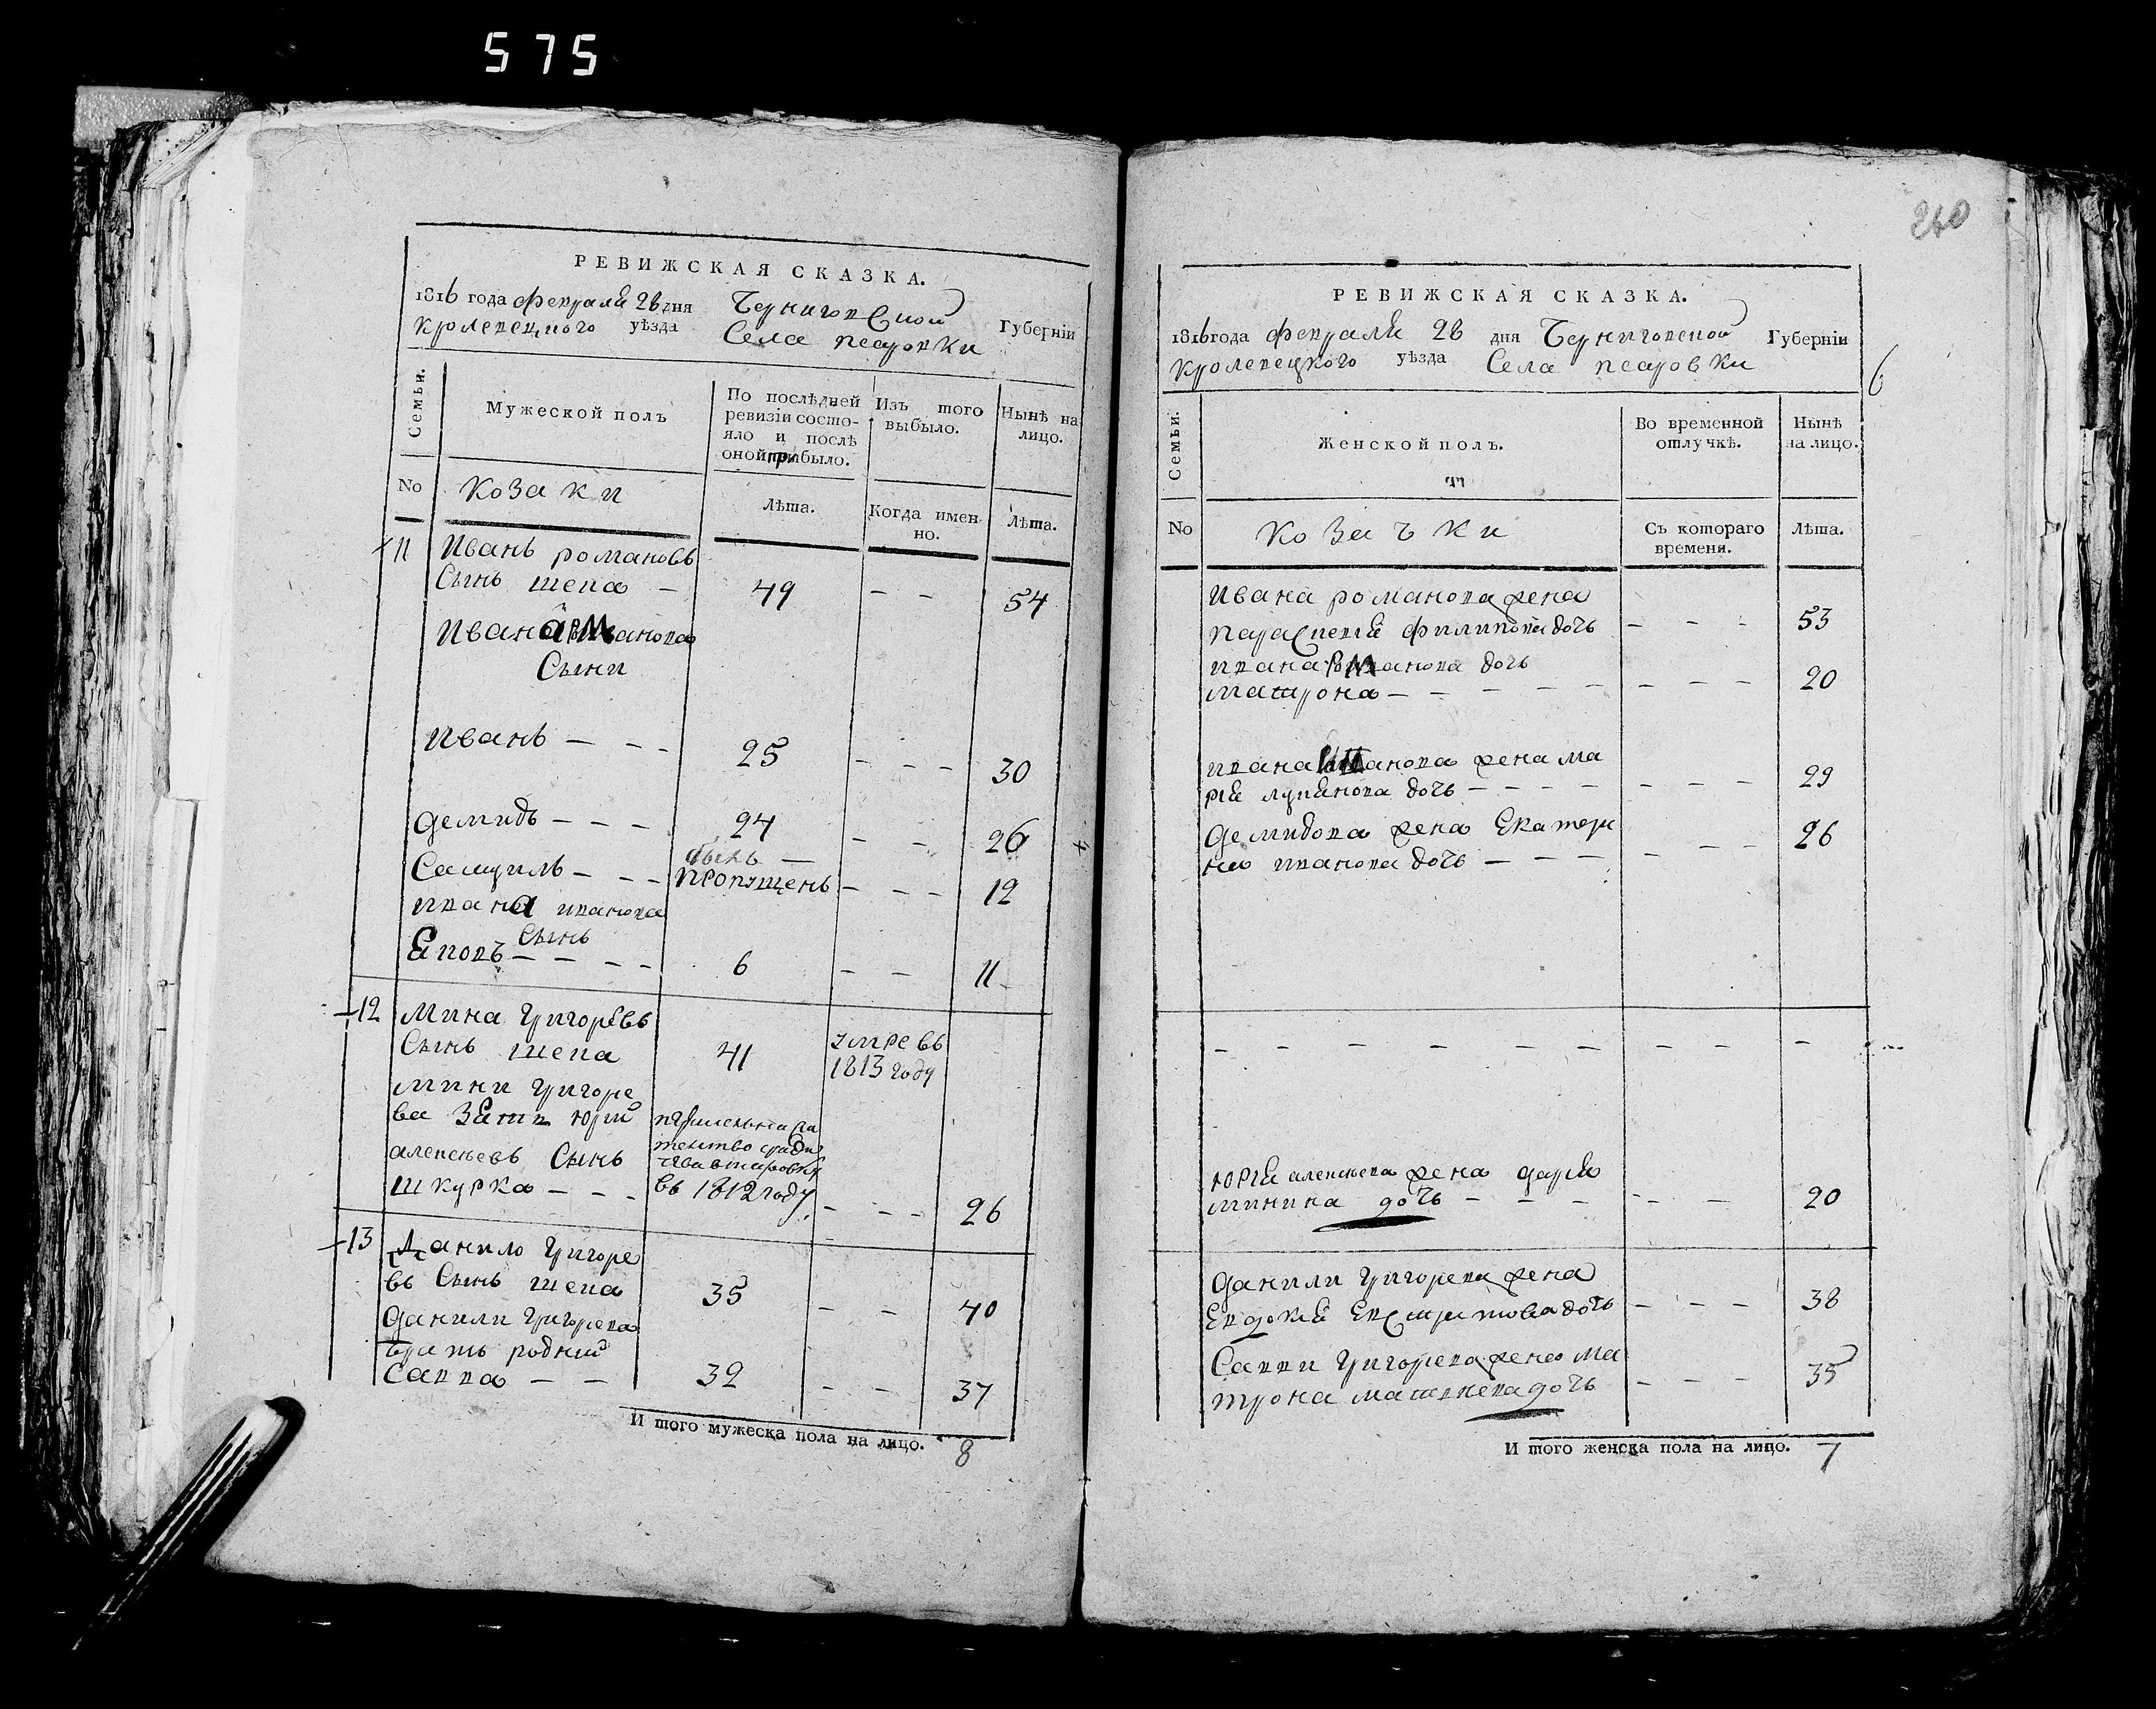 575
РЕВИЖСКАЯ СКАЗКА.
1816 года февраля 28 дня Черниговской Губерніи
Кролевецкого уѣзда Села псаровки
Семьи.
Мужеской полъ
По послѣдней
ревизіи состо-
яло и послѣ
оной прибыло.
Изъ того
выбыло.
Нынѣ на
лицо.
No
Козаки
Лѣта.
Когда имен-
но.
Лѣта.
11 Иванъ романовъ
Сынъ шепа – 49 – – 54
Ивана романова
Сыни
Иванъ – – – 25 – – – 30
Демидъ – – – 24 – – 26
былъ –
Самуилъ – – – пропущенъ – – – 12
ивана иванова
Сынъ
– – – – 6 – – 11
12 Мина Григоревъ
Сынъ шепа 41 умре въ
1813 году
Мини Григоре
ва Зять юрій
алексѣевъ Сынъ
шкурка – – – въ 1812 году – – – 26
13 Данило Григоре
въ Сынъ шепа 35 – – 40
Данили Григорева
братъ родний
Савва – – 32 – – 37
И того мужеска пола на лицо. 8
240
РЕВИЖСКАЯ СКАЗКА.
1816 года февраля 28 дня Черниговской Губерніи
Кролевецкого уѣзда Села псаровки
Семьи.
Женской полъ.
Во временной
отлучкѣ.
Нынѣ
на лицо.
No
Козачки
Съ котораго
времени.
Лѣта.
Ивана романова жена
параскевія филипова дочь – – – 53
ивана романова дочь
матрона – – – – – – – – 20
ивана иванова жена ма
рія лукянова дочь – – – – – – – 29
Демидова жена Екатери
на иванова дочь – – – – – – – 26
– – – – – – – – –
юрія алексѣева жена дарія
минина дочь – – – – – – 20
Данили Григорева жена
Евдокія дочь – – – 38
Савви Григорева жена ма
трона матвѣева дочь – – – 35
И того женска пола на лицо. 7